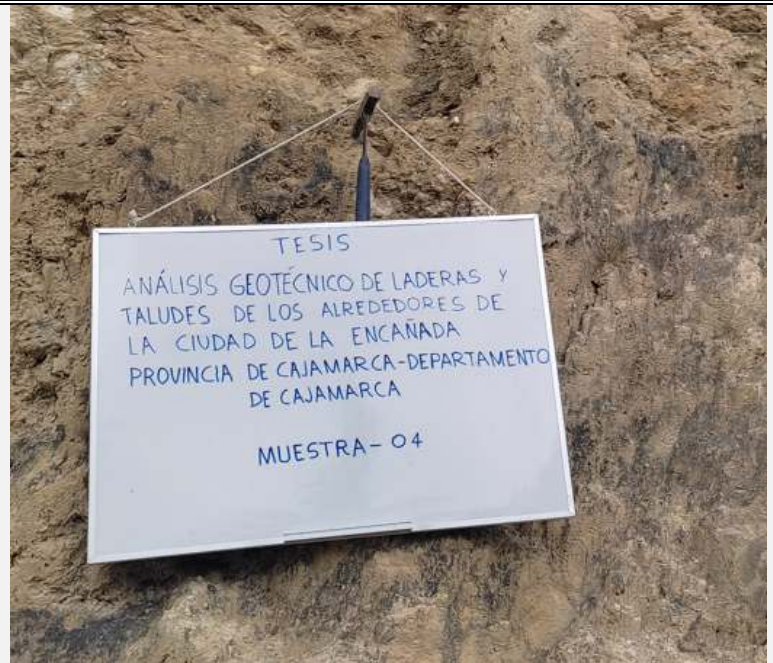 TESIS
ANÁLISIS GEOTÉCNICO DE LADERAS Y
TALUDES DE LOS ALREDEDORES DE
LA CIUDAD DE LA ENCAÑADA
PROVINCIA DE CAJAMARCA-DEPARTAMENTO
DE CAJAMARCA
MUESTRA-04